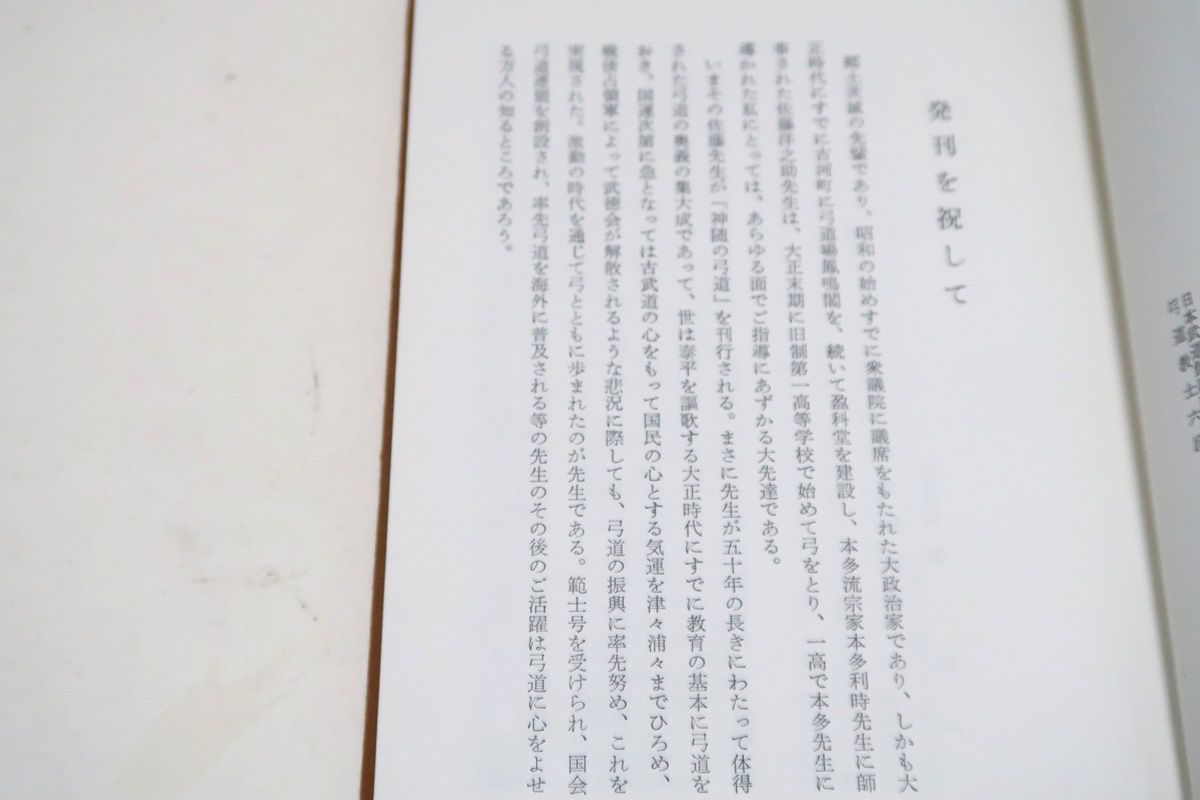 発刊を祝して
郷土茨城の先輩であり、昭和の始めすでに衆議院に議席をもたれた大政治家であり、しかも大
正時代にすでに古河町に弓道場鳳鳴閣を、続いて盈科堂を建設し、本多流宗家本多利時先生に師
事された佐藤洋之助先生は、大正末期に旧制第一高等学校で始めて弓をとり、一高で本多先生に
導かれた私にとっては、あらゆる面でご指導にあずかる大先達である。
いまその佐藤先生が「神随の弓道」を刊行される。まさに先生が五十年の長きにわたって体得
された弓道の奥義の集大成であって、世は泰平を謳歌する大正時代にすでに教育の基本に弓道を
おき、国運次第に急となっては古武道の心をもって国民の心とする気運を津々浦々までひろめ、
戦後占領軍によって武徳会が解散されるような悲況に際しても、弓道の振興に率先努め、これを
実現された。激動の時代を通じて弓とともに歩まれたのが先生である。範士号を受けられ、国会
弓道連盟を創設され、率先弓道を海外に普及される等の先生のその後のご活躍は弓道に心をよせ
る万人の知るところであろう。
日本
弓道教士六段